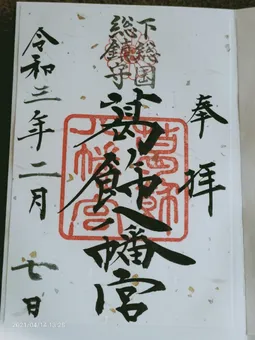 奉拝
下総国
総鎮守
葛飾八幡宮
令和三年二月七日
葛飾
八幡宮